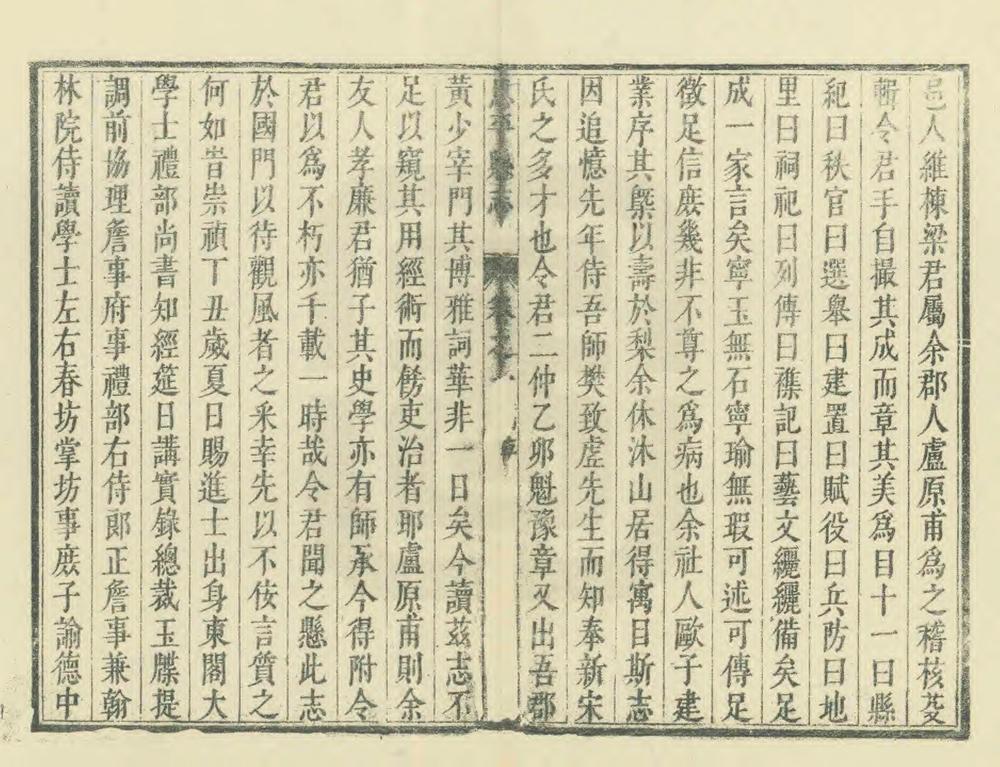 邑人維棟梁君屬余郡人盧原甫爲之稽核芟
輯令君手自撮其成而章其美爲目十一曰縣
紀曰秩官曰選舉曰建置曰賦役曰兵防曰地
里曰祠祀曰列傳曰襍記曰藝文纚纚備矣足
成一家言矣寧玉無石寧瑜無瑕可述可傳足
徵足信庻幾非不尊之爲病也余社人歐子建
業序其槩以壽於梨余休沐山居得寓目斯志
因追憶先年侍吾師樊致虗先生而知奉新宋
氏之多才也令君二仲乙卯魁豫章又出吾郡
恩平縣志 卷之 序
黃少宰門其博雅詞華非一日矣今讀茲志不
足以窺其用經術而餝吏治者耶盧原甫則余
友人孝廉君猶子其史學亦有師承今得附令
君以爲不朽亦千載一時哉令君聞之懸此志
於國門以待觀風者之采幸先以不佞言質之
何如旹崇禎丁丑歲夏日賜進士出身東閣大
學士禮部尚書知經筵日講實錄總裁玉牒提
調前協理詹事府事禮部右侍郎正詹事兼翰
林院侍讀學士左右春坊掌坊事庻子諭德中